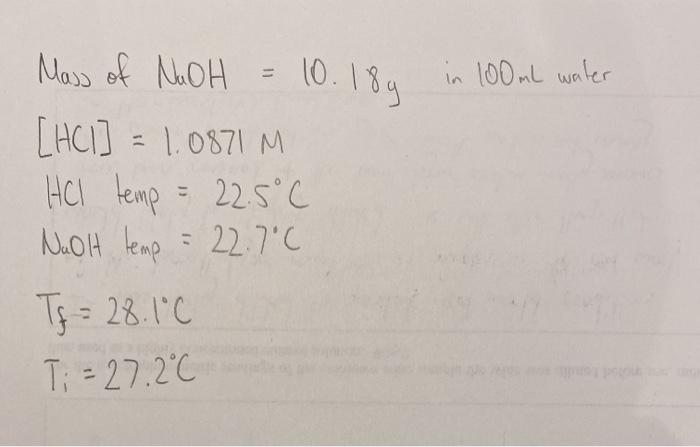 Mass of NaOH = 10.18g in 100mL water
[HCl] = 1.0871 M
HCl temp = 22.5°C
NaOH temp = 22.7°C
Tf = 28.1°C
Ti = 27.2°C